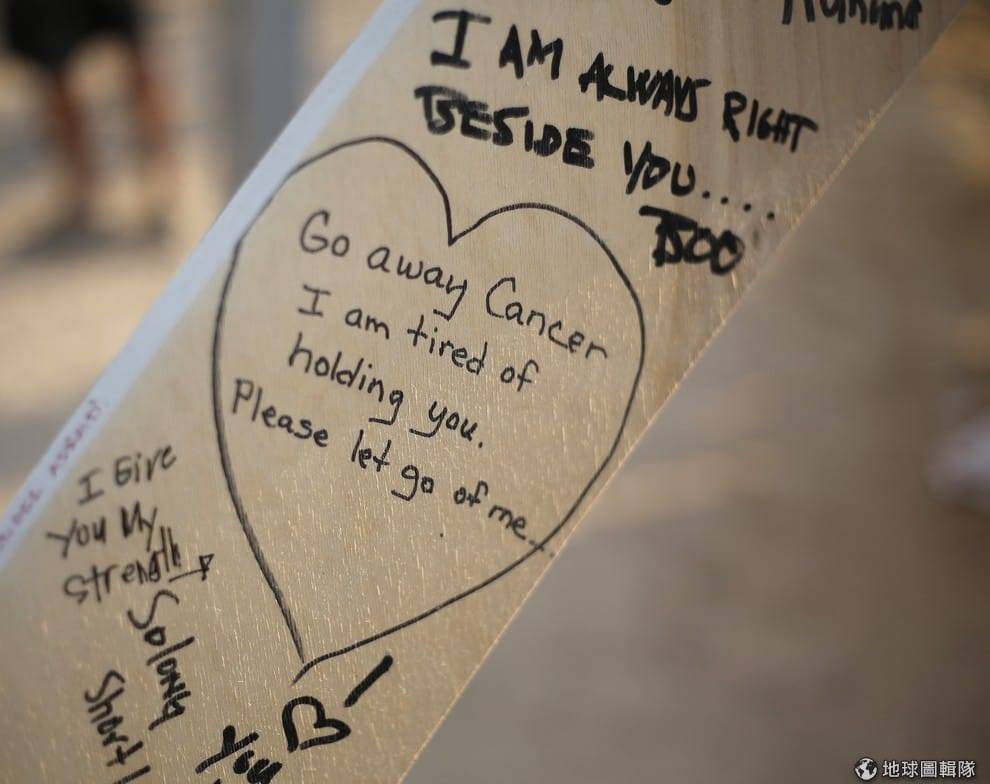 I AM ALWAYS RIGHT
BESIDE YOU....
BOO
Go away Cancer
I am tired of
holding you.
Please let go of me...
I Give
you My
Strength
Solong
Short
You
地球圖輯隊